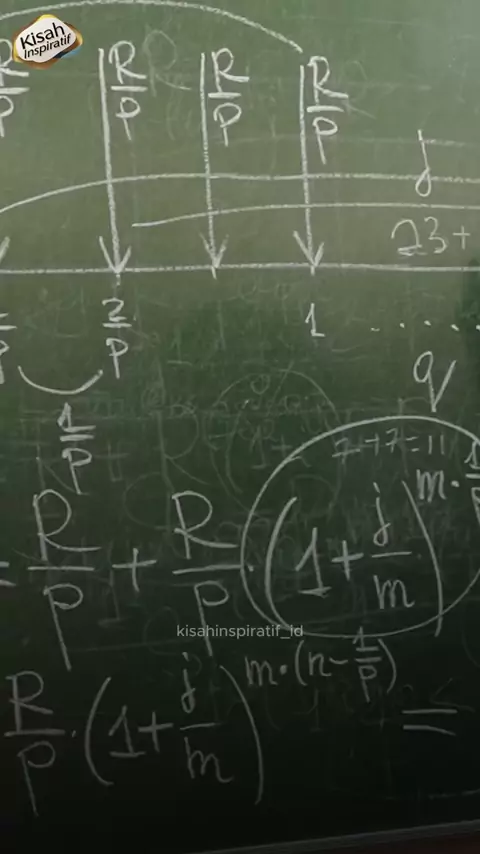 Kisah
Inspiratif
R/P R/P R/P R/P
j
23+
2/P 1 .....
1/P q
7+7=11
= R/P + R/P · (1 + j/m)^m·1/P
kisahinspiratif_id
R/P · (1 + j/m)^m·(n - 1/P) =